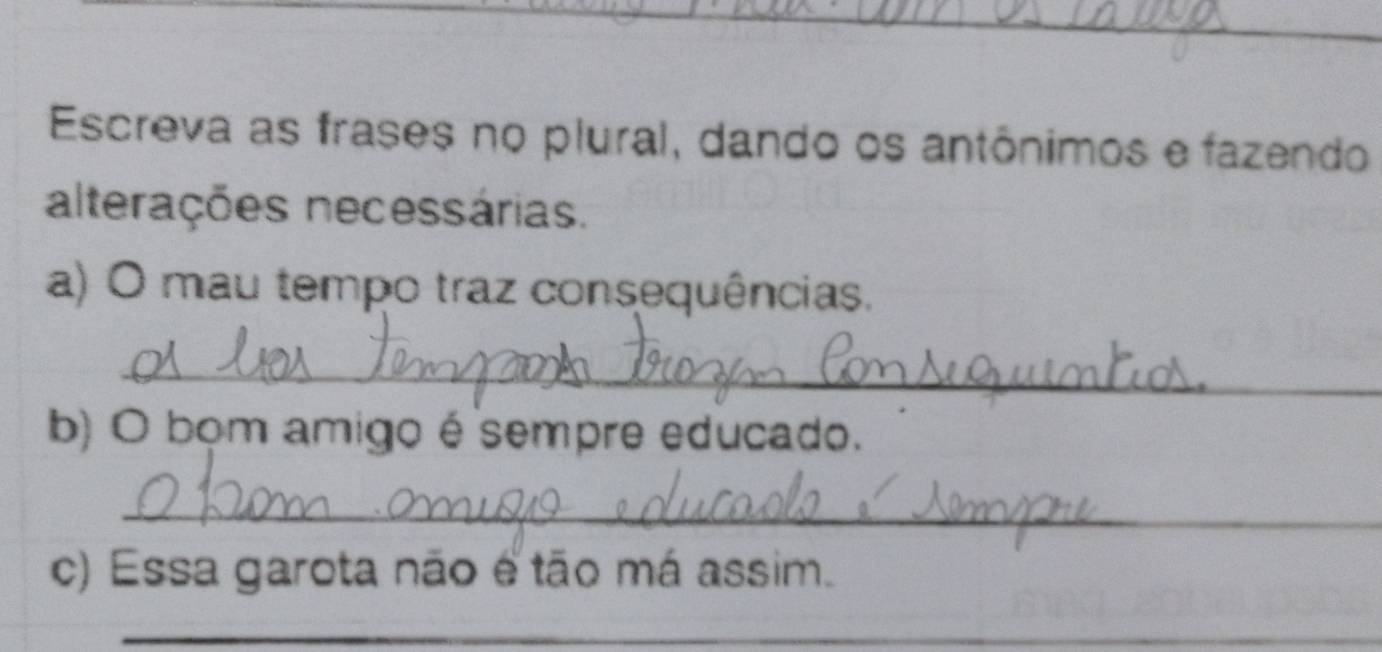 com os
Escreva as frases no plural, dando os antônimos e fazendo
alterações necessárias.
a) O mau tempo traz consequências.
os tempos trazem
b) O bom amigo é sempre educado.
O bom amigo educado é sempre
c) Essa garota não é tão má assim.